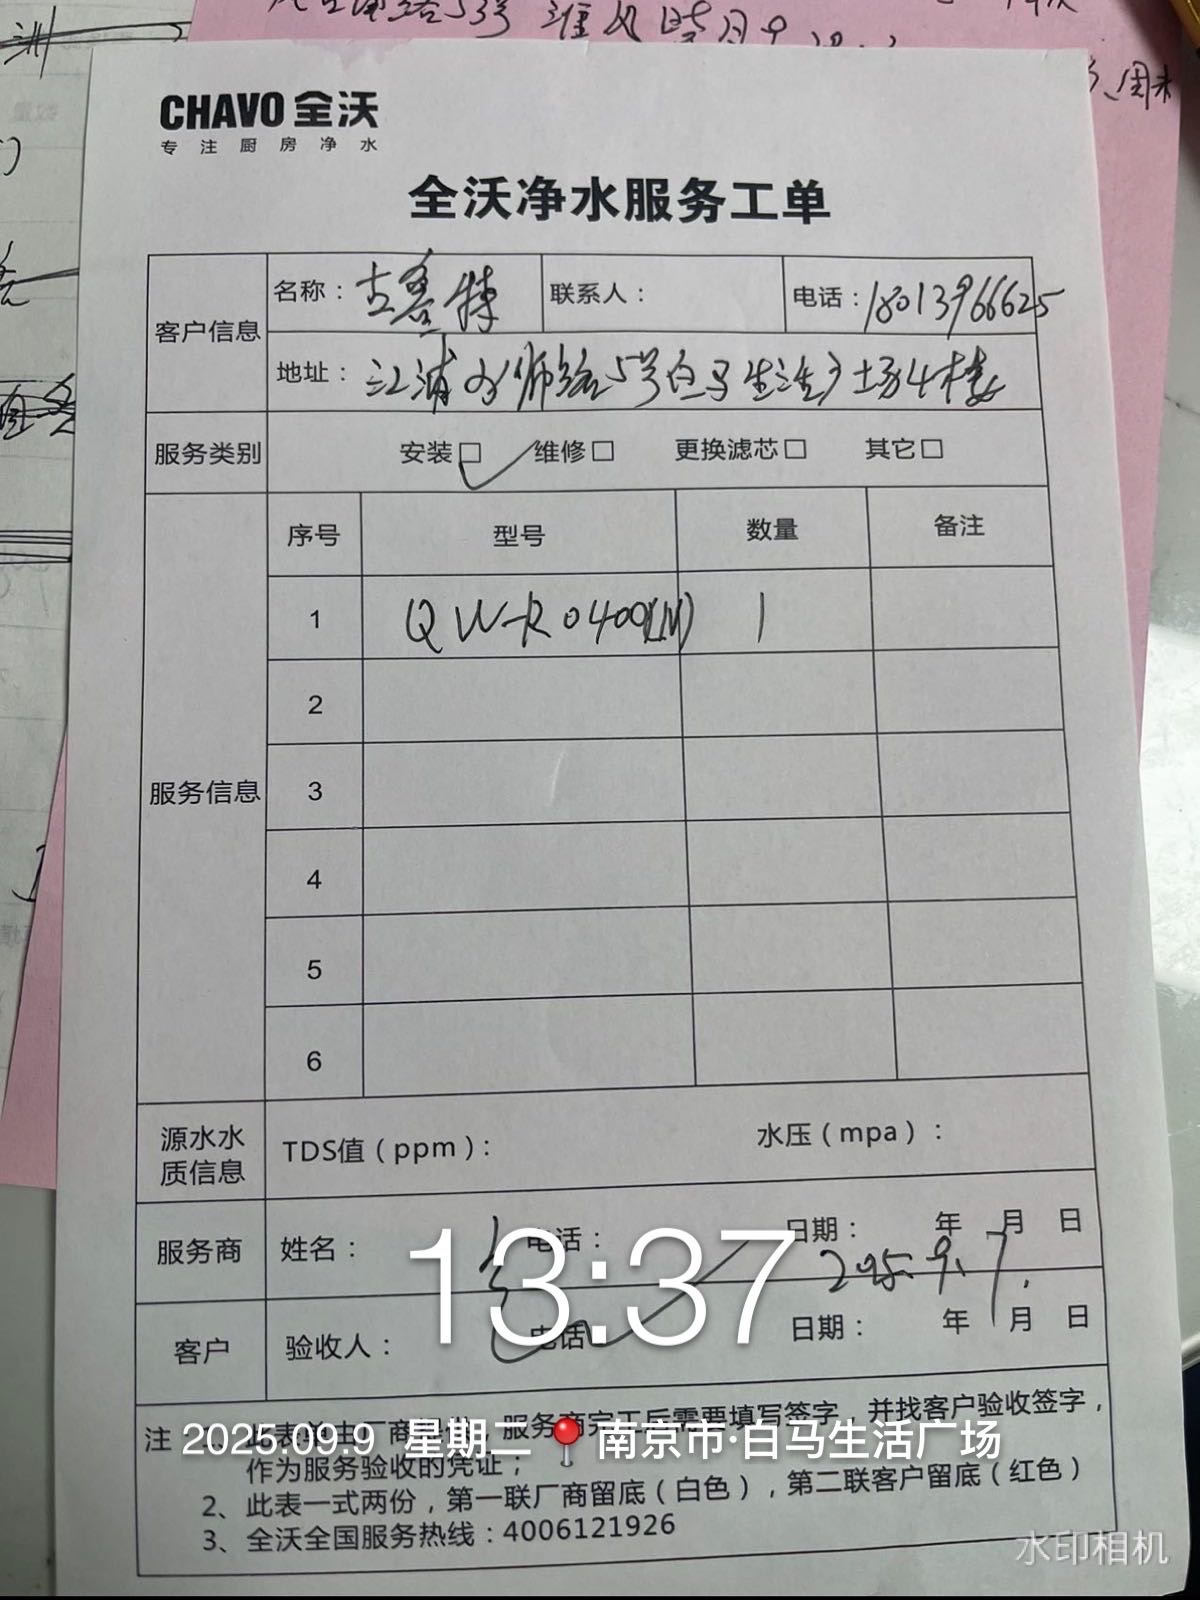 CHAVO 全沃
专注厨房净水
全沃净水服务工单
客户信息 名称： 联系人： 电话：18013966625
地址：江浦水师路5号白马生活广场4楼
服务类别 安装□ 维修□ 更换滤芯□ 其它□
服务信息 序号 型号 数量 备注
1 QW-RO400(LM) 1
2
3
4
5
6
源水水质信息 TDS值（ppm）： 水压（mpa）：
服务商 姓名： 电话： 日期： 年 月 日
2025.9.
客户 验收人： 电话： 日期： 年 月 日
13:37
注 1、此表单由厂商提供，服务商完工后需要填写签字，并找客户验收签字，
作为服务验收的凭证；
2025.09.9 星期二 📍南京市·白马生活广场
2、此表一式两份，第一联厂商留底（白色），第二联客户留底（红色）
3、全沃全国服务热线：4006121926
水印相机
周末